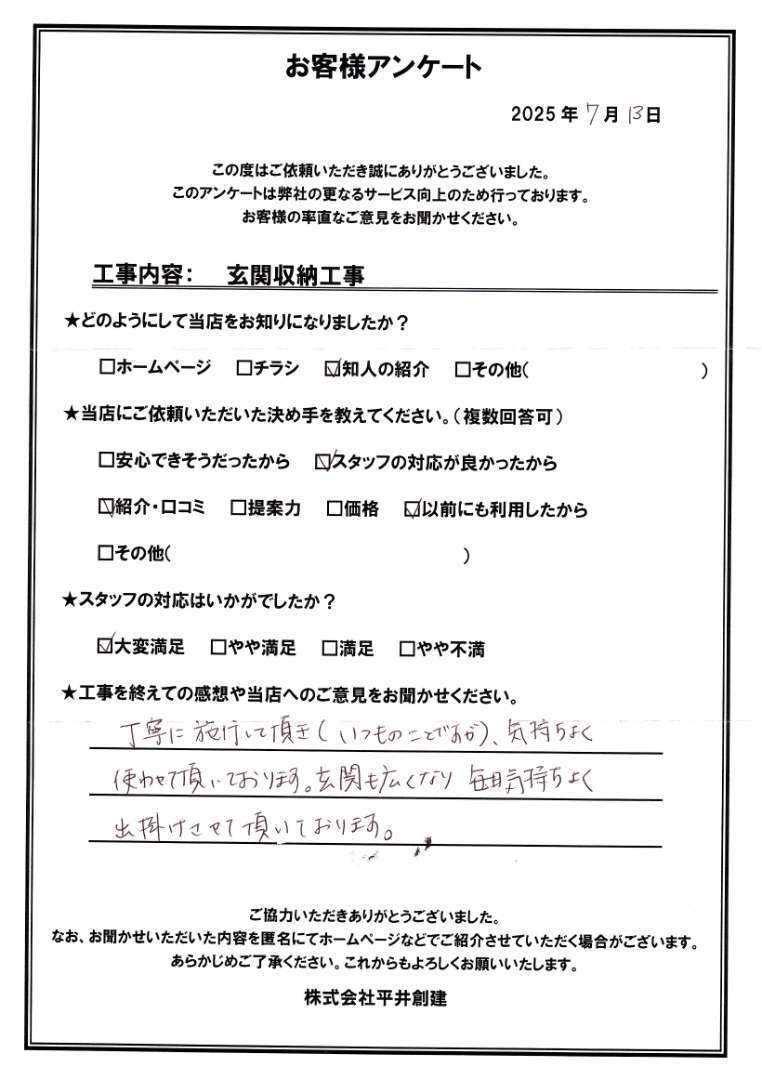 お客様アンケート
2025年7月13日
この度はご依頼いただき誠にありがとうございました。
このアンケートは弊社の更なるサービス向上のため行っております。
お客様の率直なご意見をお聞かせください。
工事内容： 玄関収納工事
★どのようにして当店をお知りになりましたか？
□ホームページ □チラシ ☑知人の紹介 □その他( )
★当店にご依頼いただいた決め手を教えてください。（複数回答可）
□安心できそうだったから ☑スタッフの対応が良かったから
☑紹介・口コミ □提案力 □価格 ☑以前にも利用したから
□その他( )
★スタッフの対応はいかがでしたか？
☑大変満足 □やや満足 □満足 □やや不満
★工事を終えての感想や当店へのご意見をお聞かせください。
丁寧に施行して頂き(いつものことですが)、気持ちよく
使わせて頂いております。玄関も広くなり 毎日気持ちよく
出掛けさせて頂いております。
ご協力いただきありがとうございました。
なお、お聞かせいただいた内容を匿名にてホームページなどでご紹介させていただく場合がございます。
あらかじめご了承ください。これからもよろしくお願いいたします。
株式会社平井創建